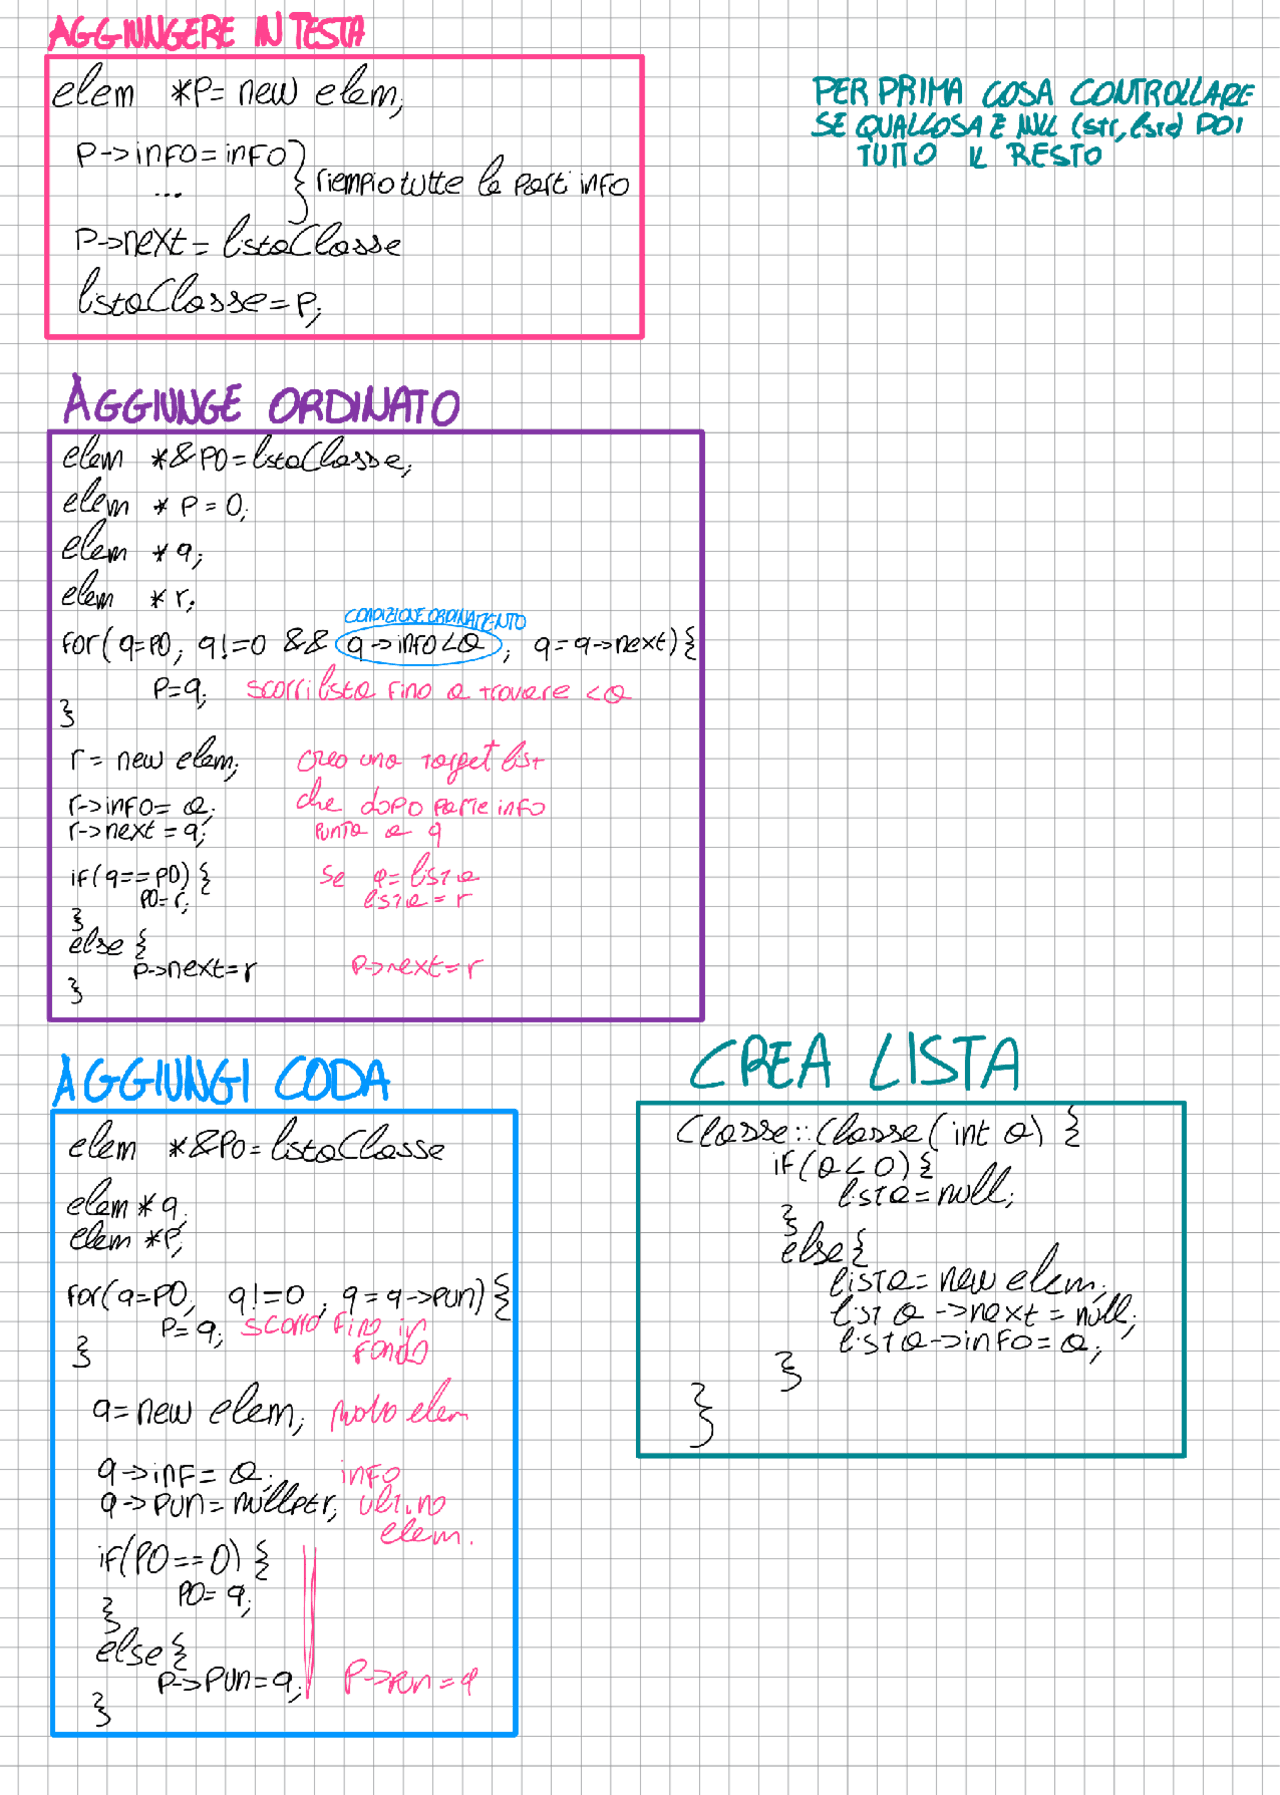 AGGIUNGERE IN TESTA
elem *P= new elem;
P->info=info
... } riempio tutte le parti info
P->next= listaClasse
listaClasse=P;
PER PRIMA COSA CONTROLLARE
SE QUALCOSA È NULL (str, lista) POI
TUTTO IL RESTO
AGGIUNGE ORDINATO
elem *&P0=listaClasse;
elem *P=0;
elem *q;
elem *r;
CONDIZIONE ORDINAMENTO
for(q=P0; q!=0 && q->info<a; q=q->next){
P=q; scorri lista fino a trovare <a
}
r= new elem; creo una target list
r->info= a; che dopo parte info
r->next=q; punta a q
if(q==P0){ se q=lista
P0=r; lista=r
}
else {
P->next=r P->next=r
}
AGGIUNGI CODA
elem *&P0=listaClasse
elem*q;
elem *P;
for(q=P0; q!=0; q=q->pun){
P=q; scorro fino in
} fondo
q=new elem; nuovo elem
q->inf= a; info
q->pun=nullptr; ultimo
elem.
if(P0==0){
P0=q;
}
else{
P->pun=q; P->pun=q
}
CREA LISTA
Classe::Classe(int a) {
if(a<0){
lista=null;
}
else{
lista=new elem;
lista->next=null;
lista->info=a;
}
}